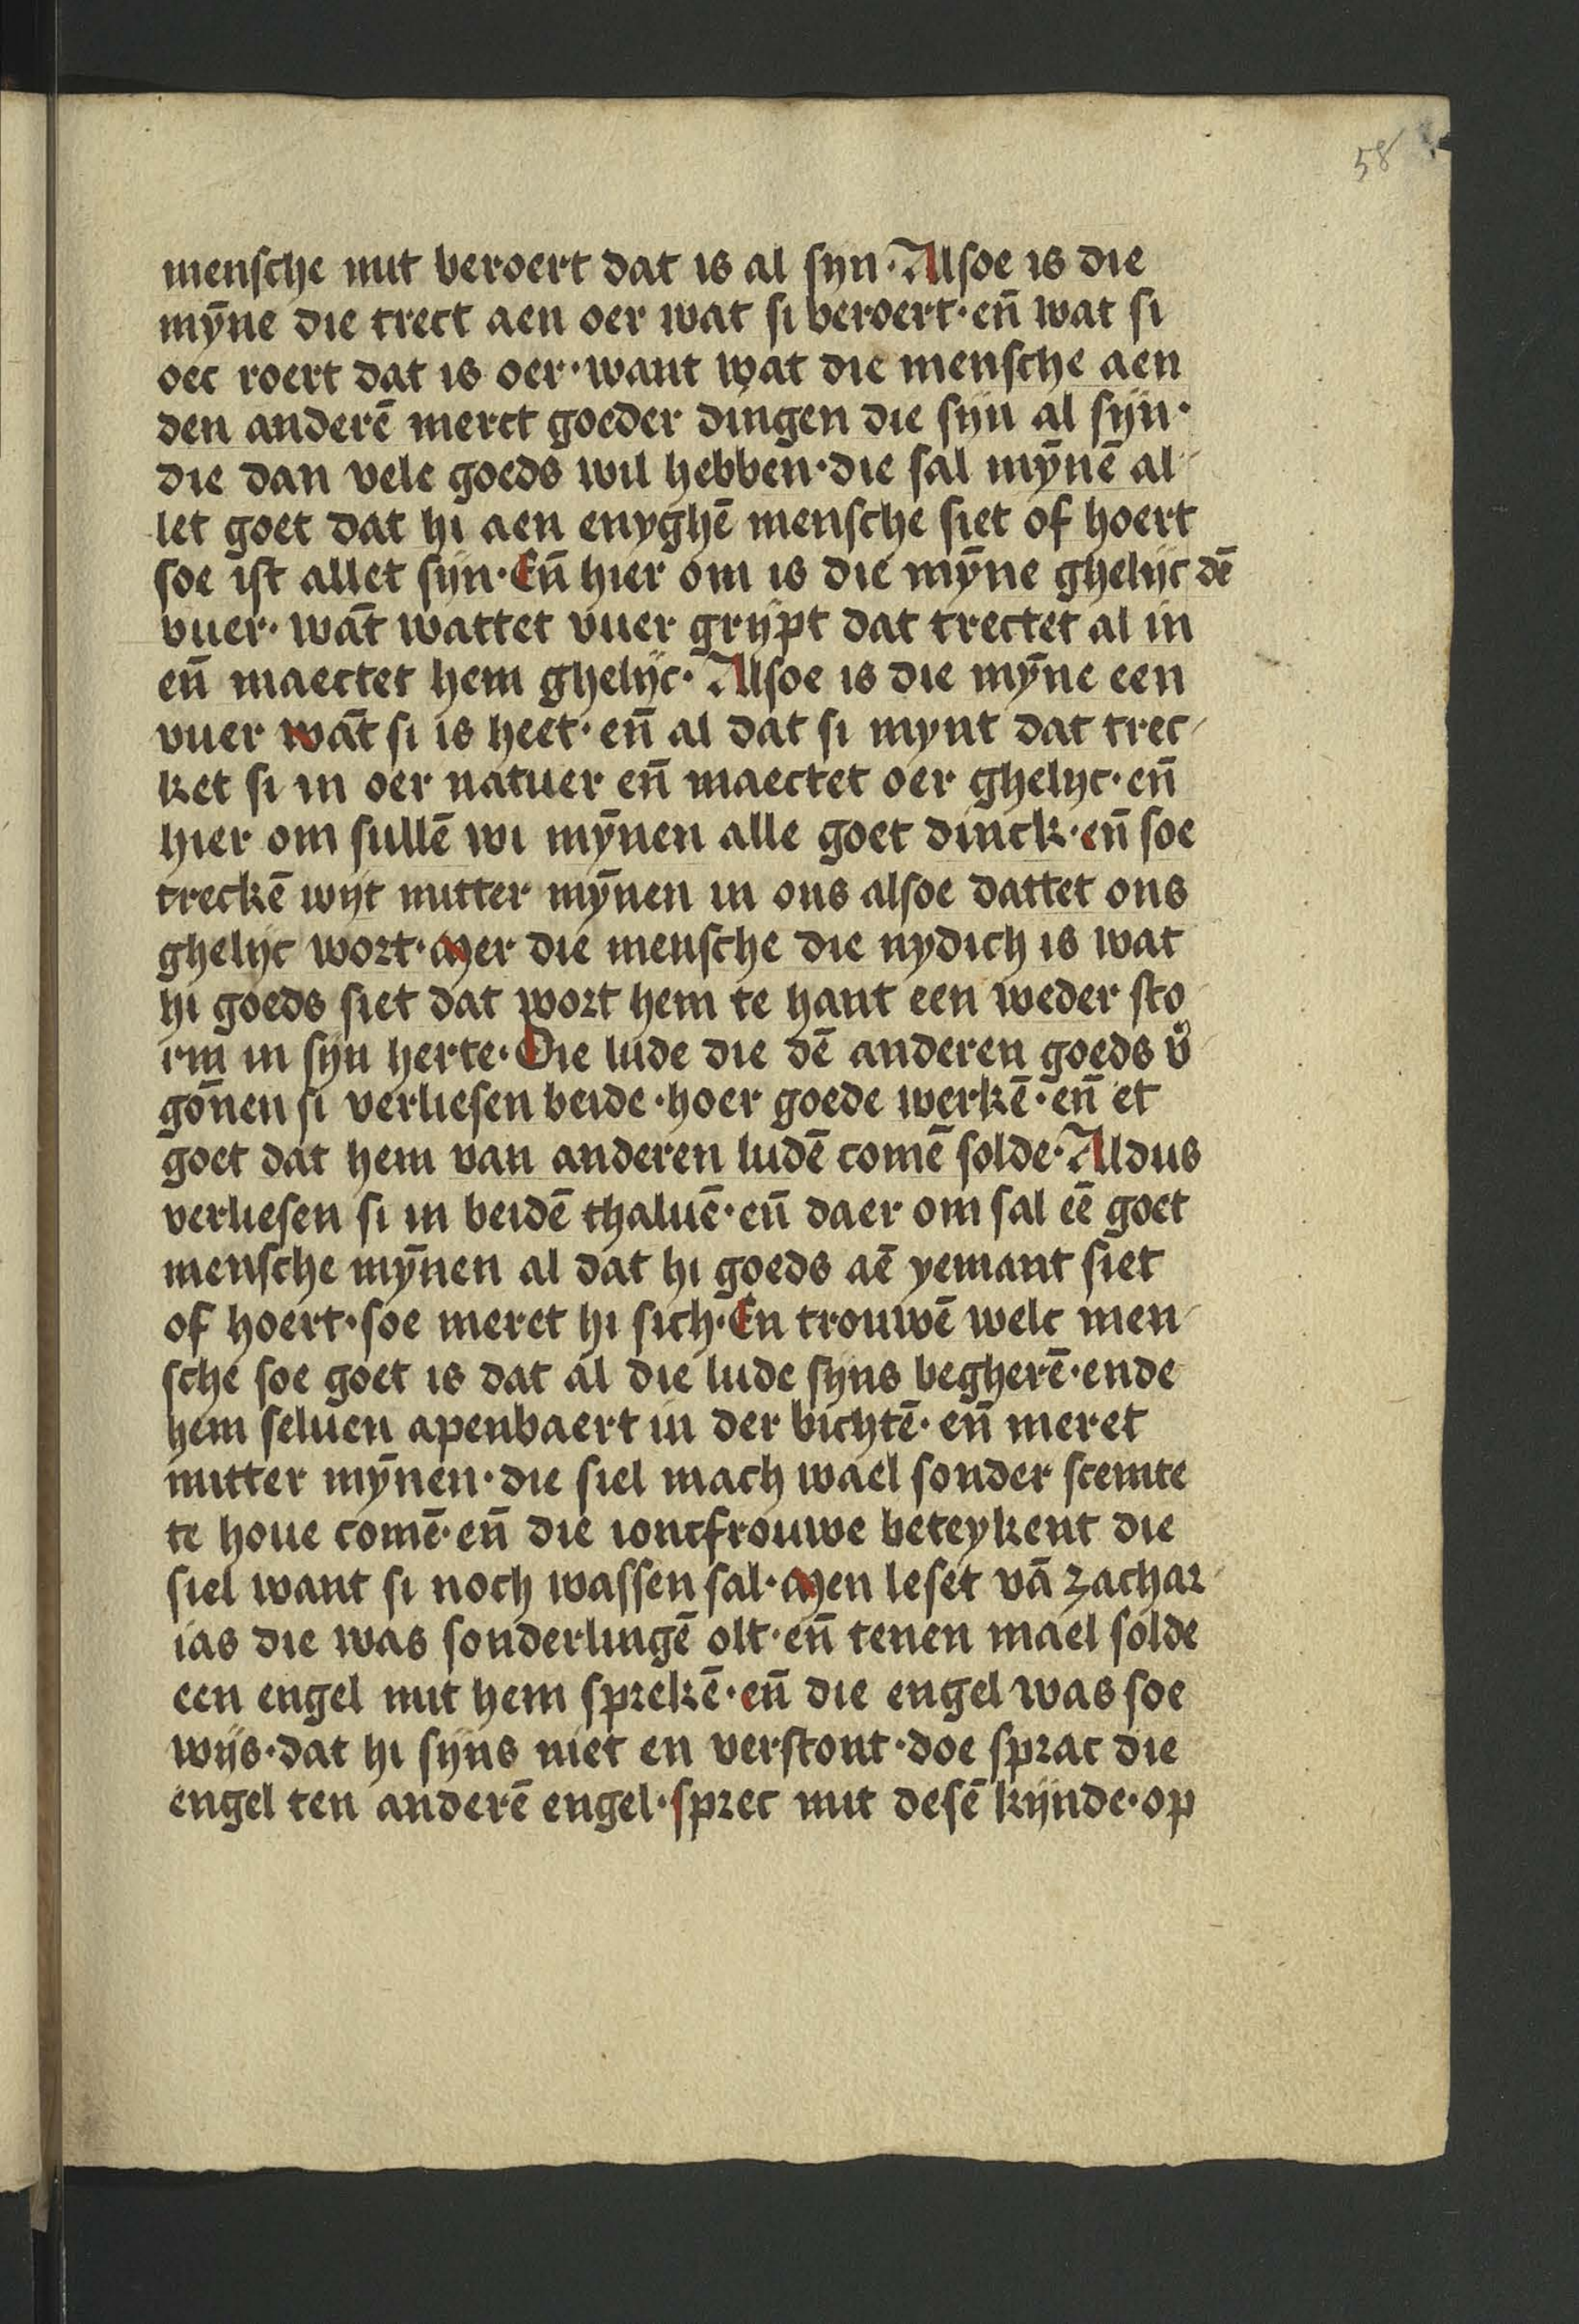 58
mensche mit beroert dat is al syn·Alsoe is die
mȳne die trect aen oer wat si beroert·en̄ wat si
oec roert dat is oer·want wat die mensche aen
den anderē merct goeder dingen die sijn al sijn·
die dan vele goeds wil hebben·die sal mȳnē al
let goet dat hi aen enyghē mensche siet of hoert
soe ist allet sijn·En̄ hier om is die mȳne ghelijc dē
vuer·wāt wattet vuer grijpt dat trectet al in
en̄ maectet hem ghelijc·Alsoe is die mȳne een
vuer wāt si is heet·en̄ al dat si mynt dat trec
ket si in oer natuer en̄ maectet oer ghelyc·en̄
hier om sullē wi mȳnen alle goet dinck·en̄ soe
treckē wijt mitter mȳnen in ons alsoe dattet ons
ghelijc wort·Mer die mensche die nydich is wat
hi goeds siet dat wort hem te hant een weder sto
rm in sijn herte·Die lude die dē anderen goeds v̄
gōnen si verliesen beide·hoer goede werkē·en̄ et
goet dat hem van anderen ludē comē solde·Aldus
verliesen si in beidē thaluē·en̄ daer om sal eē goet
mensche mȳnen al dat hi goeds aē yemant siet
of hoert·soe meret hi sich·En trouwē welc men
sche soe goet is dat al die lude sijns begherē·ende
hem seluen apenbaert in der bichtē·en̄ meret
mitter mȳnen·die siel mach wael sonder stemte
te houe comē·en̄ die ioncfrouwe beteykent die
siel want si noch wassen sal·Men leset vā zachar
ias die was sonderlingē olt·en̄ tenen mael solde
een engel mit hem sprekē·en̄ die engel was soe
wijs·dat hi sijns niet en verstont·doe sprac die
engel ten anderē engel·sprec mit desē kijnde·op